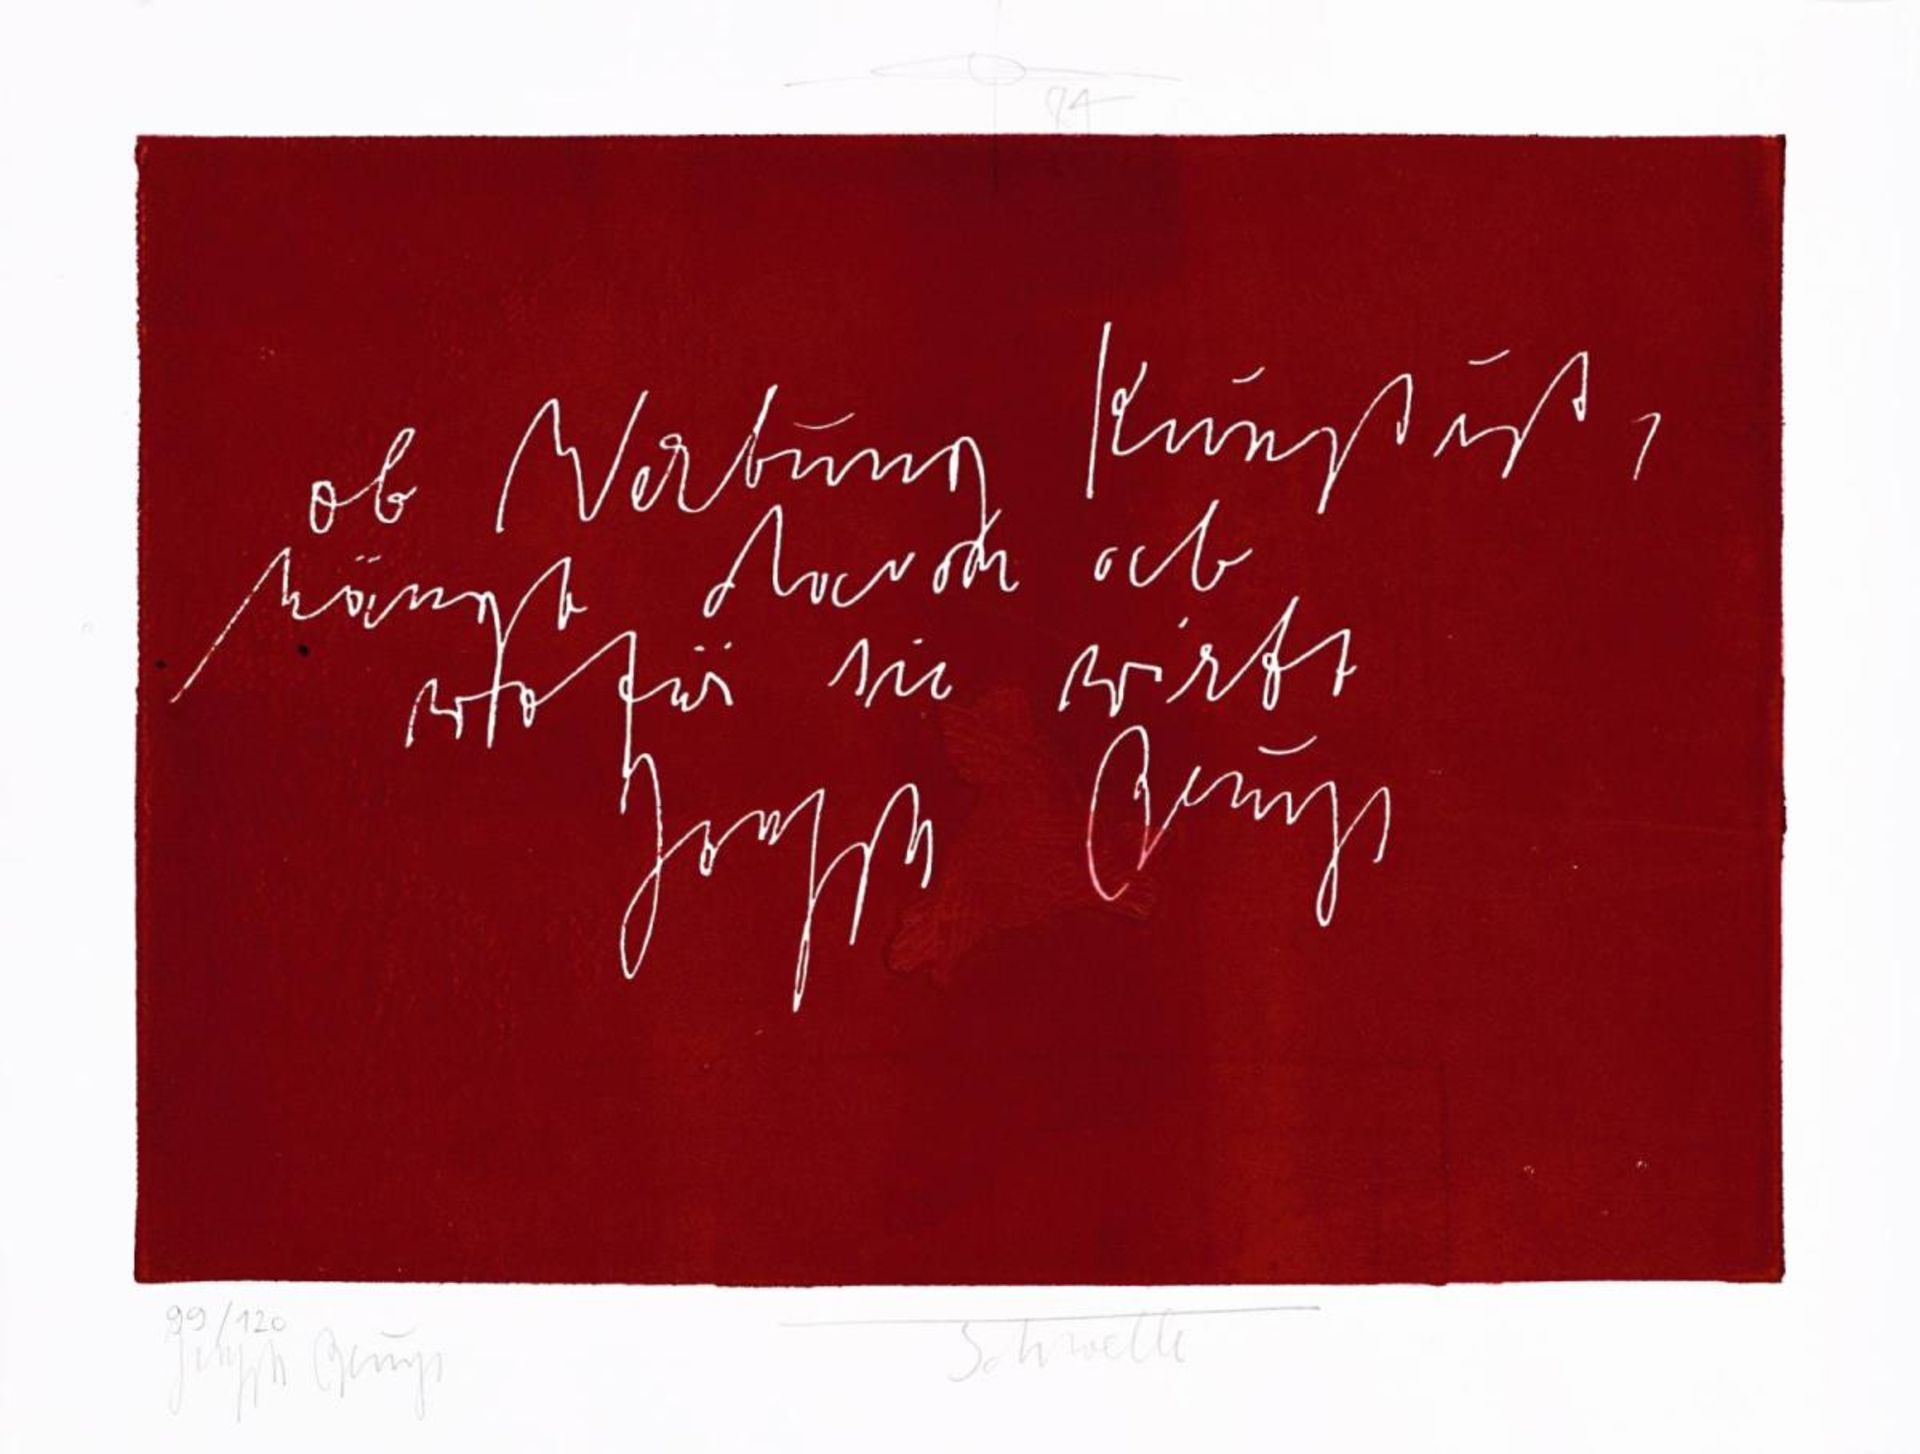 84
ob Werbung Kunst ist,
hängt davon ab
wofür sie wirbt
Joseph Beuys
99/120
Joseph Beuys
Schwelle